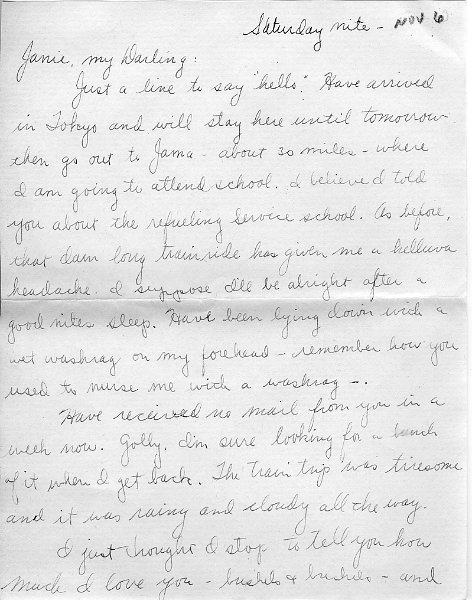 Saturday nite - NOV 6
Janie, my Darling:
Just a line to say "hello." Have arrived
in Tokyo and will stay here until tomorrow
then go out to Jama - about 30 miles - where
I am going to attend school. I believe I told
you about the refueling service school. As before,
that darn long train ride has given me a helluva
headache. I suppose I'll be alright after a
good nites sleep. Have been lying down with a
wet washrag on my forehead - remember how you
used to nurse me with a washrag -.
Have received no mail from you in a
week now. Golly. I'm sure looking for a bunch
of it when I get back. The train trip was tiresome
and it was rainy and cloudy all the way.
I just thought I stop to tell you how
much I love you - bushels & bushels - and